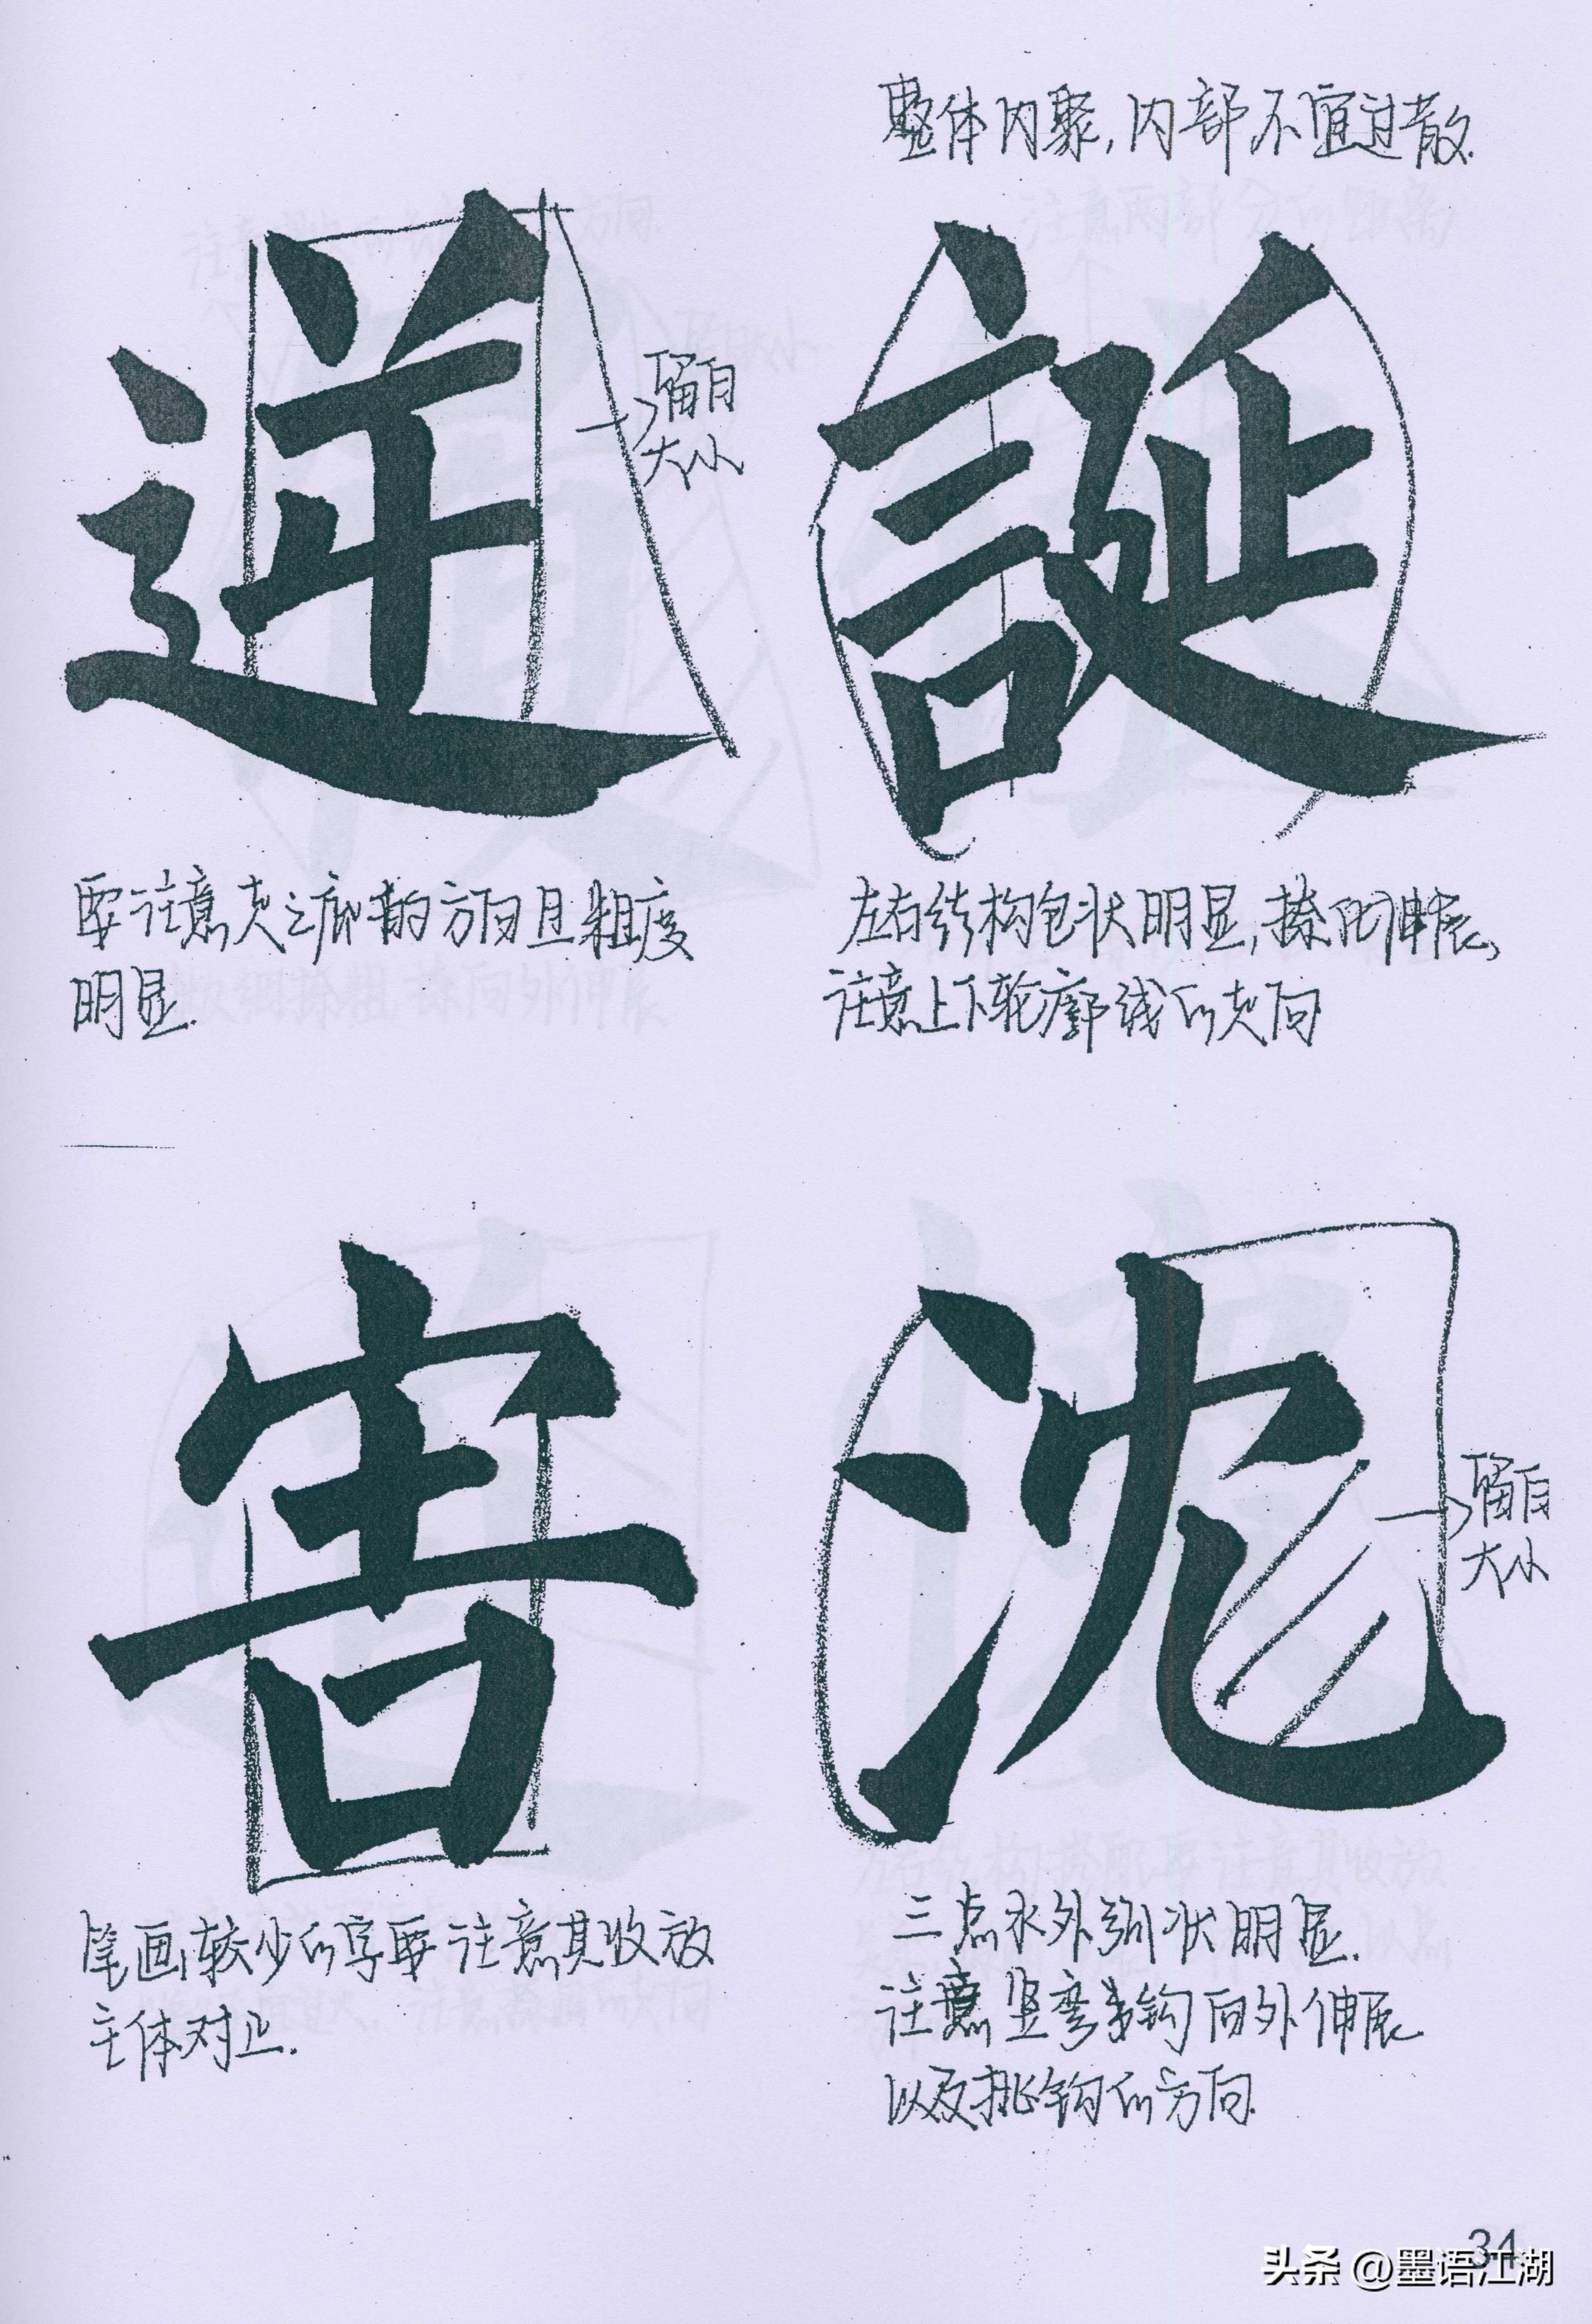 整体内聚,内部不宜过散.
逆
誕
留白
大小
要注意走之底的方向且粗度
明显.
左右结构包状明显,捺的伸展,
注意上下轮廓线的走向
害
沈
留白
大小
笔画较少的字要注意其收放
主体对正.
三点水外弧状明显.
注意竖弯钩向外伸展
以及挑钩的方向.
34
头条 @墨语江湖